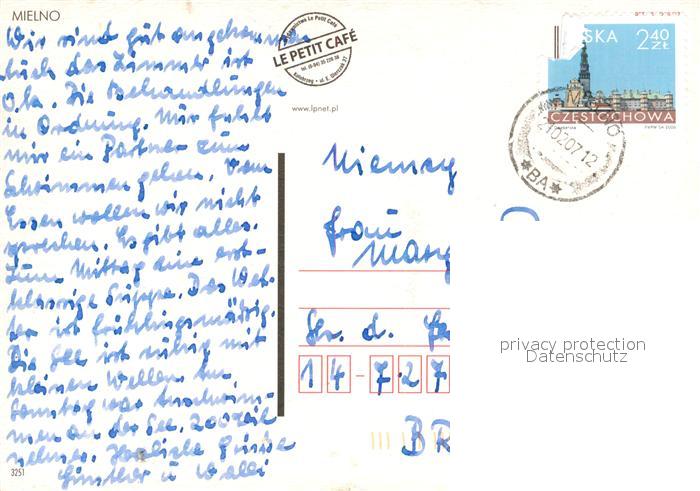 MIELNO
Wir sind gut angekommen
Auch das Zimmer ist
O.k. Die Behandlungen
in Ordnung. Mir fehlt
mir ein Partner zum
Schwimmen gehen. Vom
Essen wollen wir nicht
sprechen. Es gibt alles.
Zum Mittag eine erst-
klassige Suppe. Das Wet-
ter ist frühlingsmäßig.
Die See ist ruhig mit
kleinen Wellen. Am
Sonntag war
men an der See. 200 Teil
nehmer. Herzliche Grüsse
Günther u Walli
3251
Le Petit Café
LE PETIT CAFÉ
www.lpnet.pl
SKA 2 40
ZŁ
CZĘSTOCHOWA
210207.12
*BA*
Niemcy
Frau
Marg
Str. d.
14-727
BR
privacy protection
Datenschutz